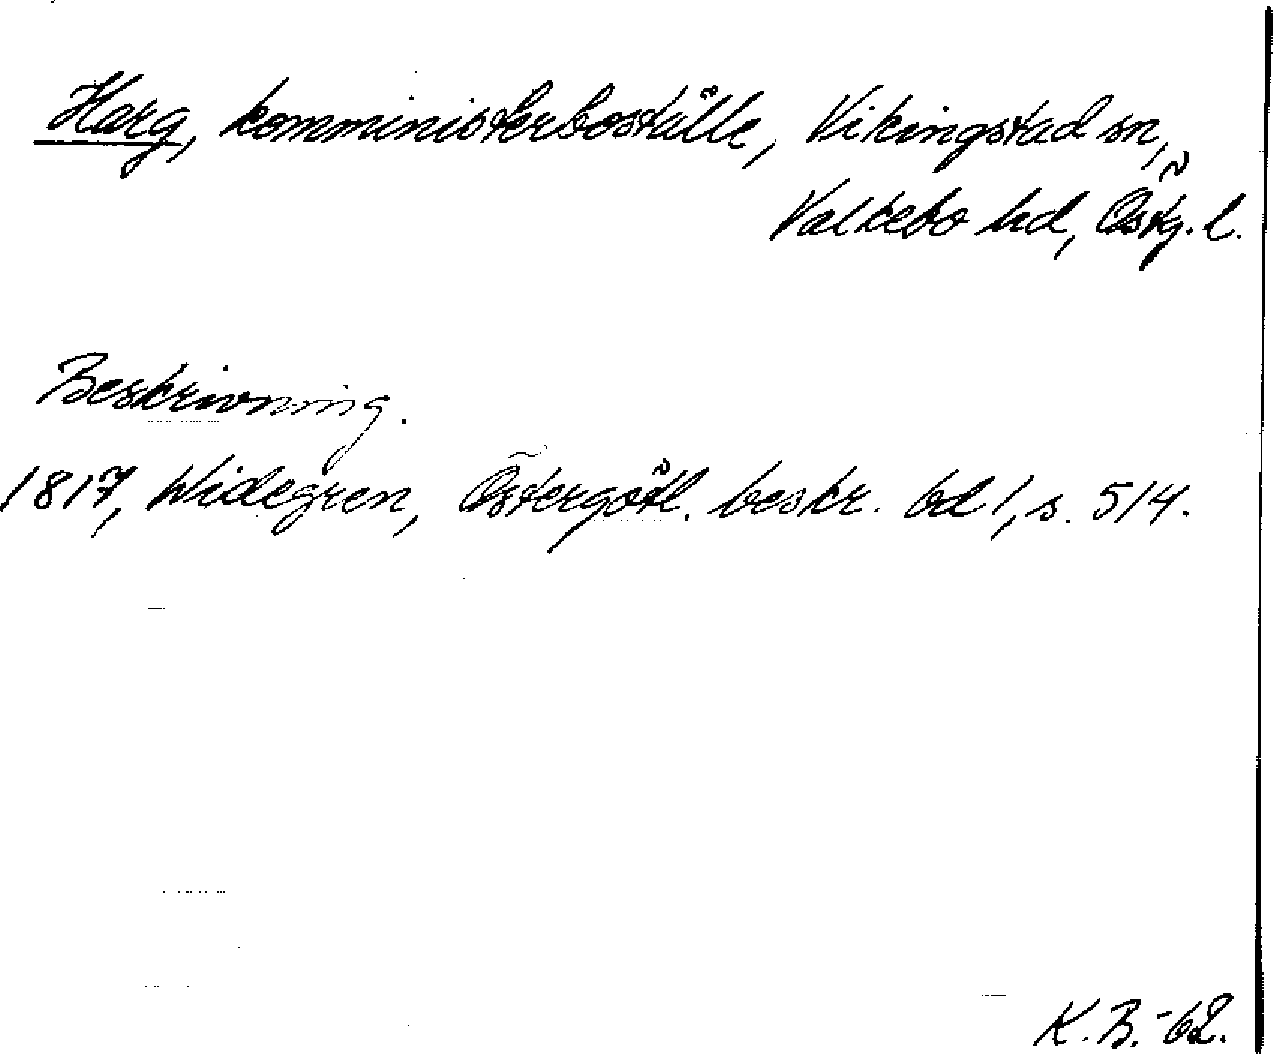 Harg, komministerboställe, Vikingstad sn,
Valkebo hd, Östg. l.
Beskrivning.
1817, Widegren, Östergötl. beskr. bd 1, s. 514.
K. B. -62.